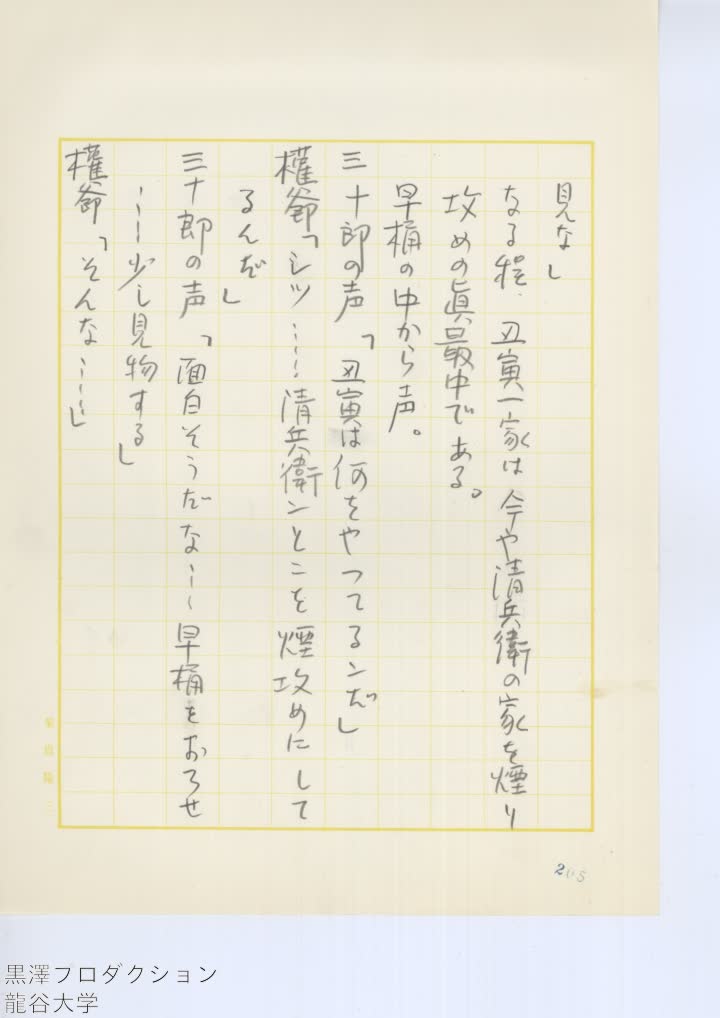 見な」
なる程、丑寅一家は今や清兵衛の家を煙り
攻めの眞最中である。
早桶の中から声。
三十郎の声「丑寅は何をやつてるンだ」
権爺「シツ……清兵衛ンとこを煙攻めにして
るんだ」
三十郎の声「面白そうだな……早桶をおろせ
……少し見物する」
権爺「そんな……」
菊島隆三
205
黒澤プロダクション
龍谷大学